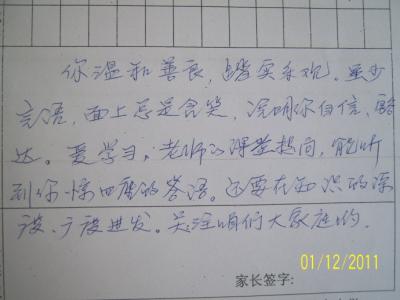 你温和善良，踏实乐观。虽少
言语，面上总是含笑，说明你自信、豁
达。爱学习，老师的课堂提问，能听
到你惊四座的答语。还要在知识的深
度、广度进发。关注咱们大家庭的。
01/12/2011
家长签字: